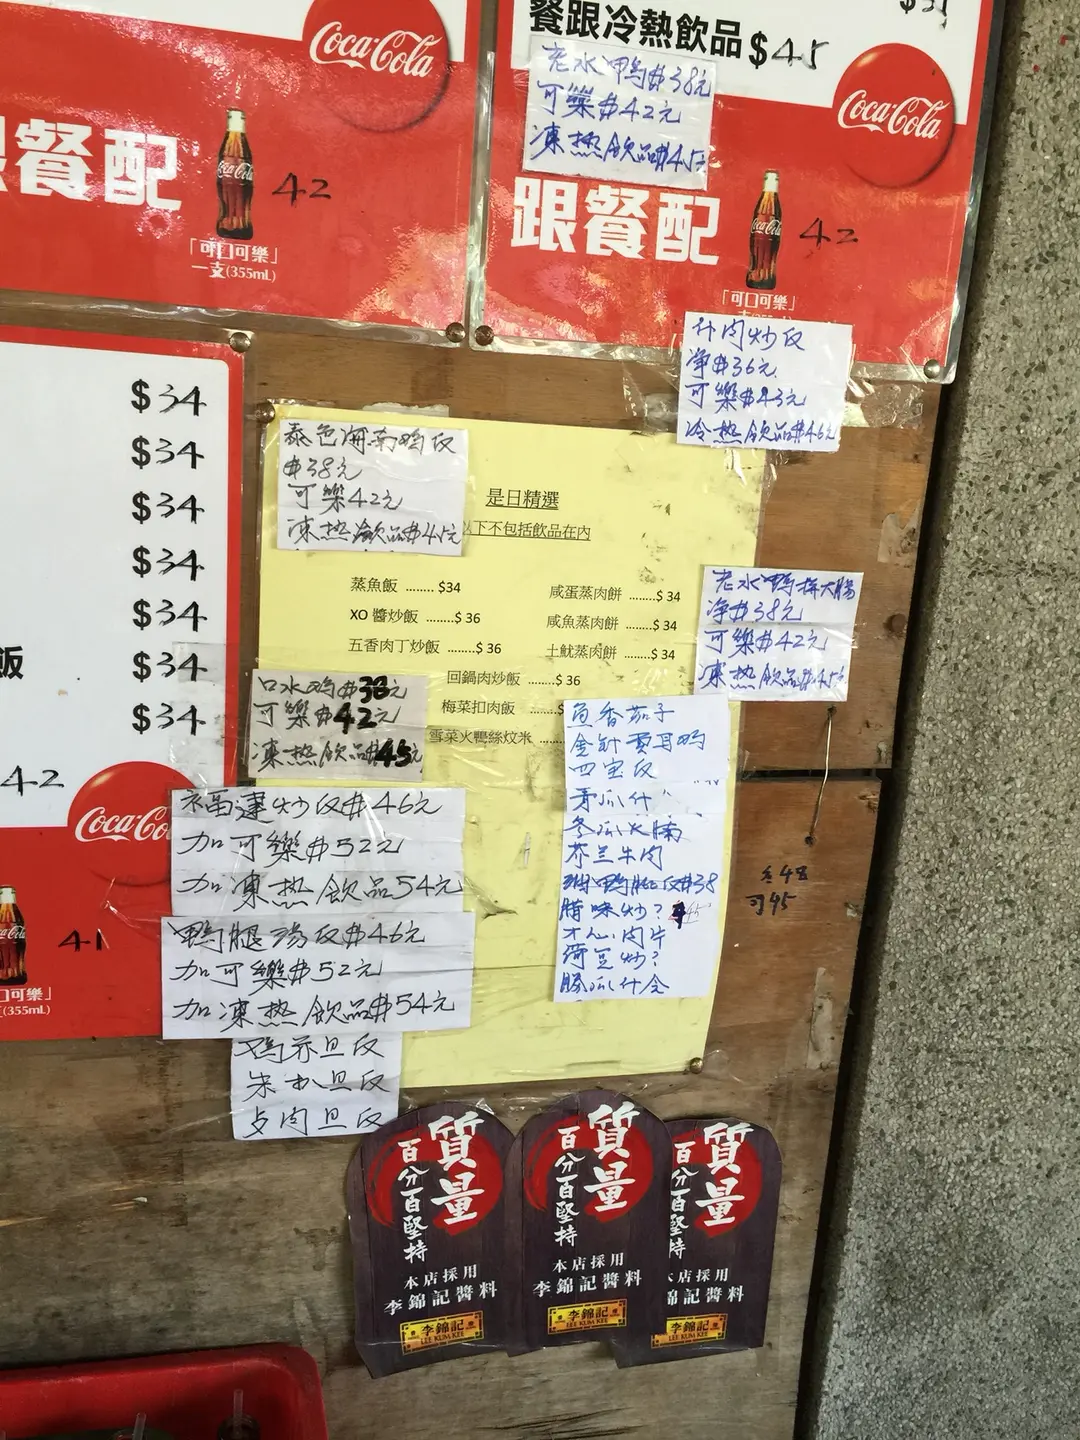 Coca-Cola
餐配
42
「可口可樂」
一支(355mL)
餐跟冷熱飲品$45
老水鴨$38元
可樂$42元
凍热飲品$45元
Coca-Cola
跟餐配
42
「可口可樂」
$34
$34
$34
$34
$34
飯
$34
$34
42
Coca-Co
41
口可樂」
(355mL)
炒反
净$36元
可樂$43元
冷热飲品$46元
泰色海南鸡反
$38元
可樂42元
凍热飲品$45元
是日精選
以下不包括飲品在內
蒸魚飯 ........ $34
XO 醬炒飯 ........$ 36
五香肉丁炒飯 ........$ 36
咸蛋蒸肉餅 ........$ 34
咸魚蒸肉餅 ........$ 34
土魷蒸肉餅 ........$ 34
回鍋肉炒飯 ........$ 36
梅菜扣肉飯 ........$
雪菜火鴨絲炆米
老水鴨拼大腸
净$38元
可樂$42元
凍热飲品$45元
口水鸡$38元
可樂$42元
凍热飲品$45元
炒反$46元
加可樂$52元
加凍热飲品54元
鴨腿湯反$46元
加可樂$52元
加凍热飲品$54元
旦反
旦反
肉旦反
魚香茄子
金針雲耳鸡
四宝反
冬瓜火腩
芥兰牛肉
鴨腿反$38
腊味炒?
肉片
荷豆炒?
勝瓜什会
冬48
可45
質量
百分百堅持
本店採用
李錦記醬料
李錦記
LEE KUM KEE
質量
百分百堅持
本店採用
李錦記醬料
李錦記
LEE KUM KEE
質量
百分百堅持
店採用
錦記醬料
李錦記
LEE KUM KEE